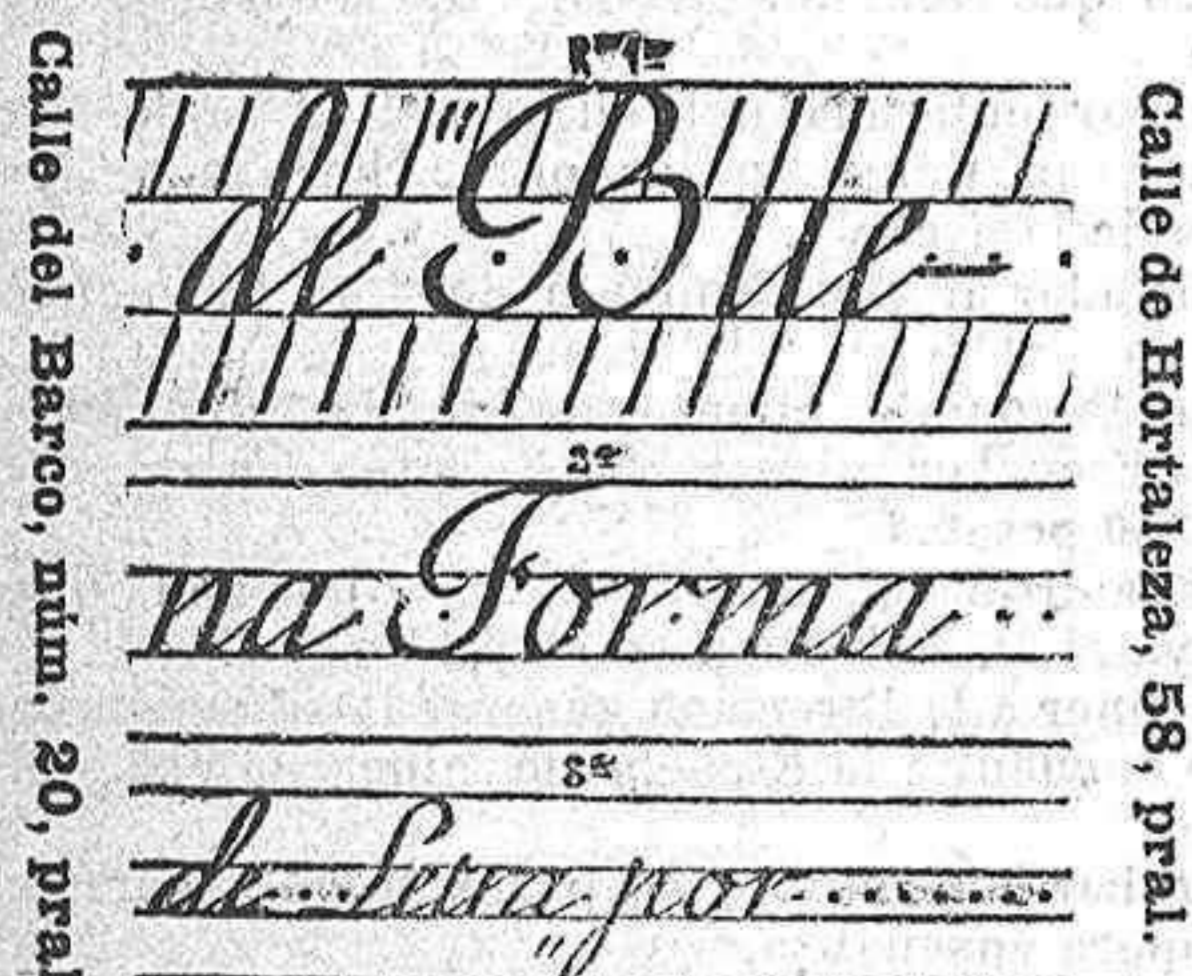 Calle del Barco, núm. 20, pral
de "Bue-
2ª
na Forma
3ª
de Letra por
Calle de Hortaleza, 58, pral.